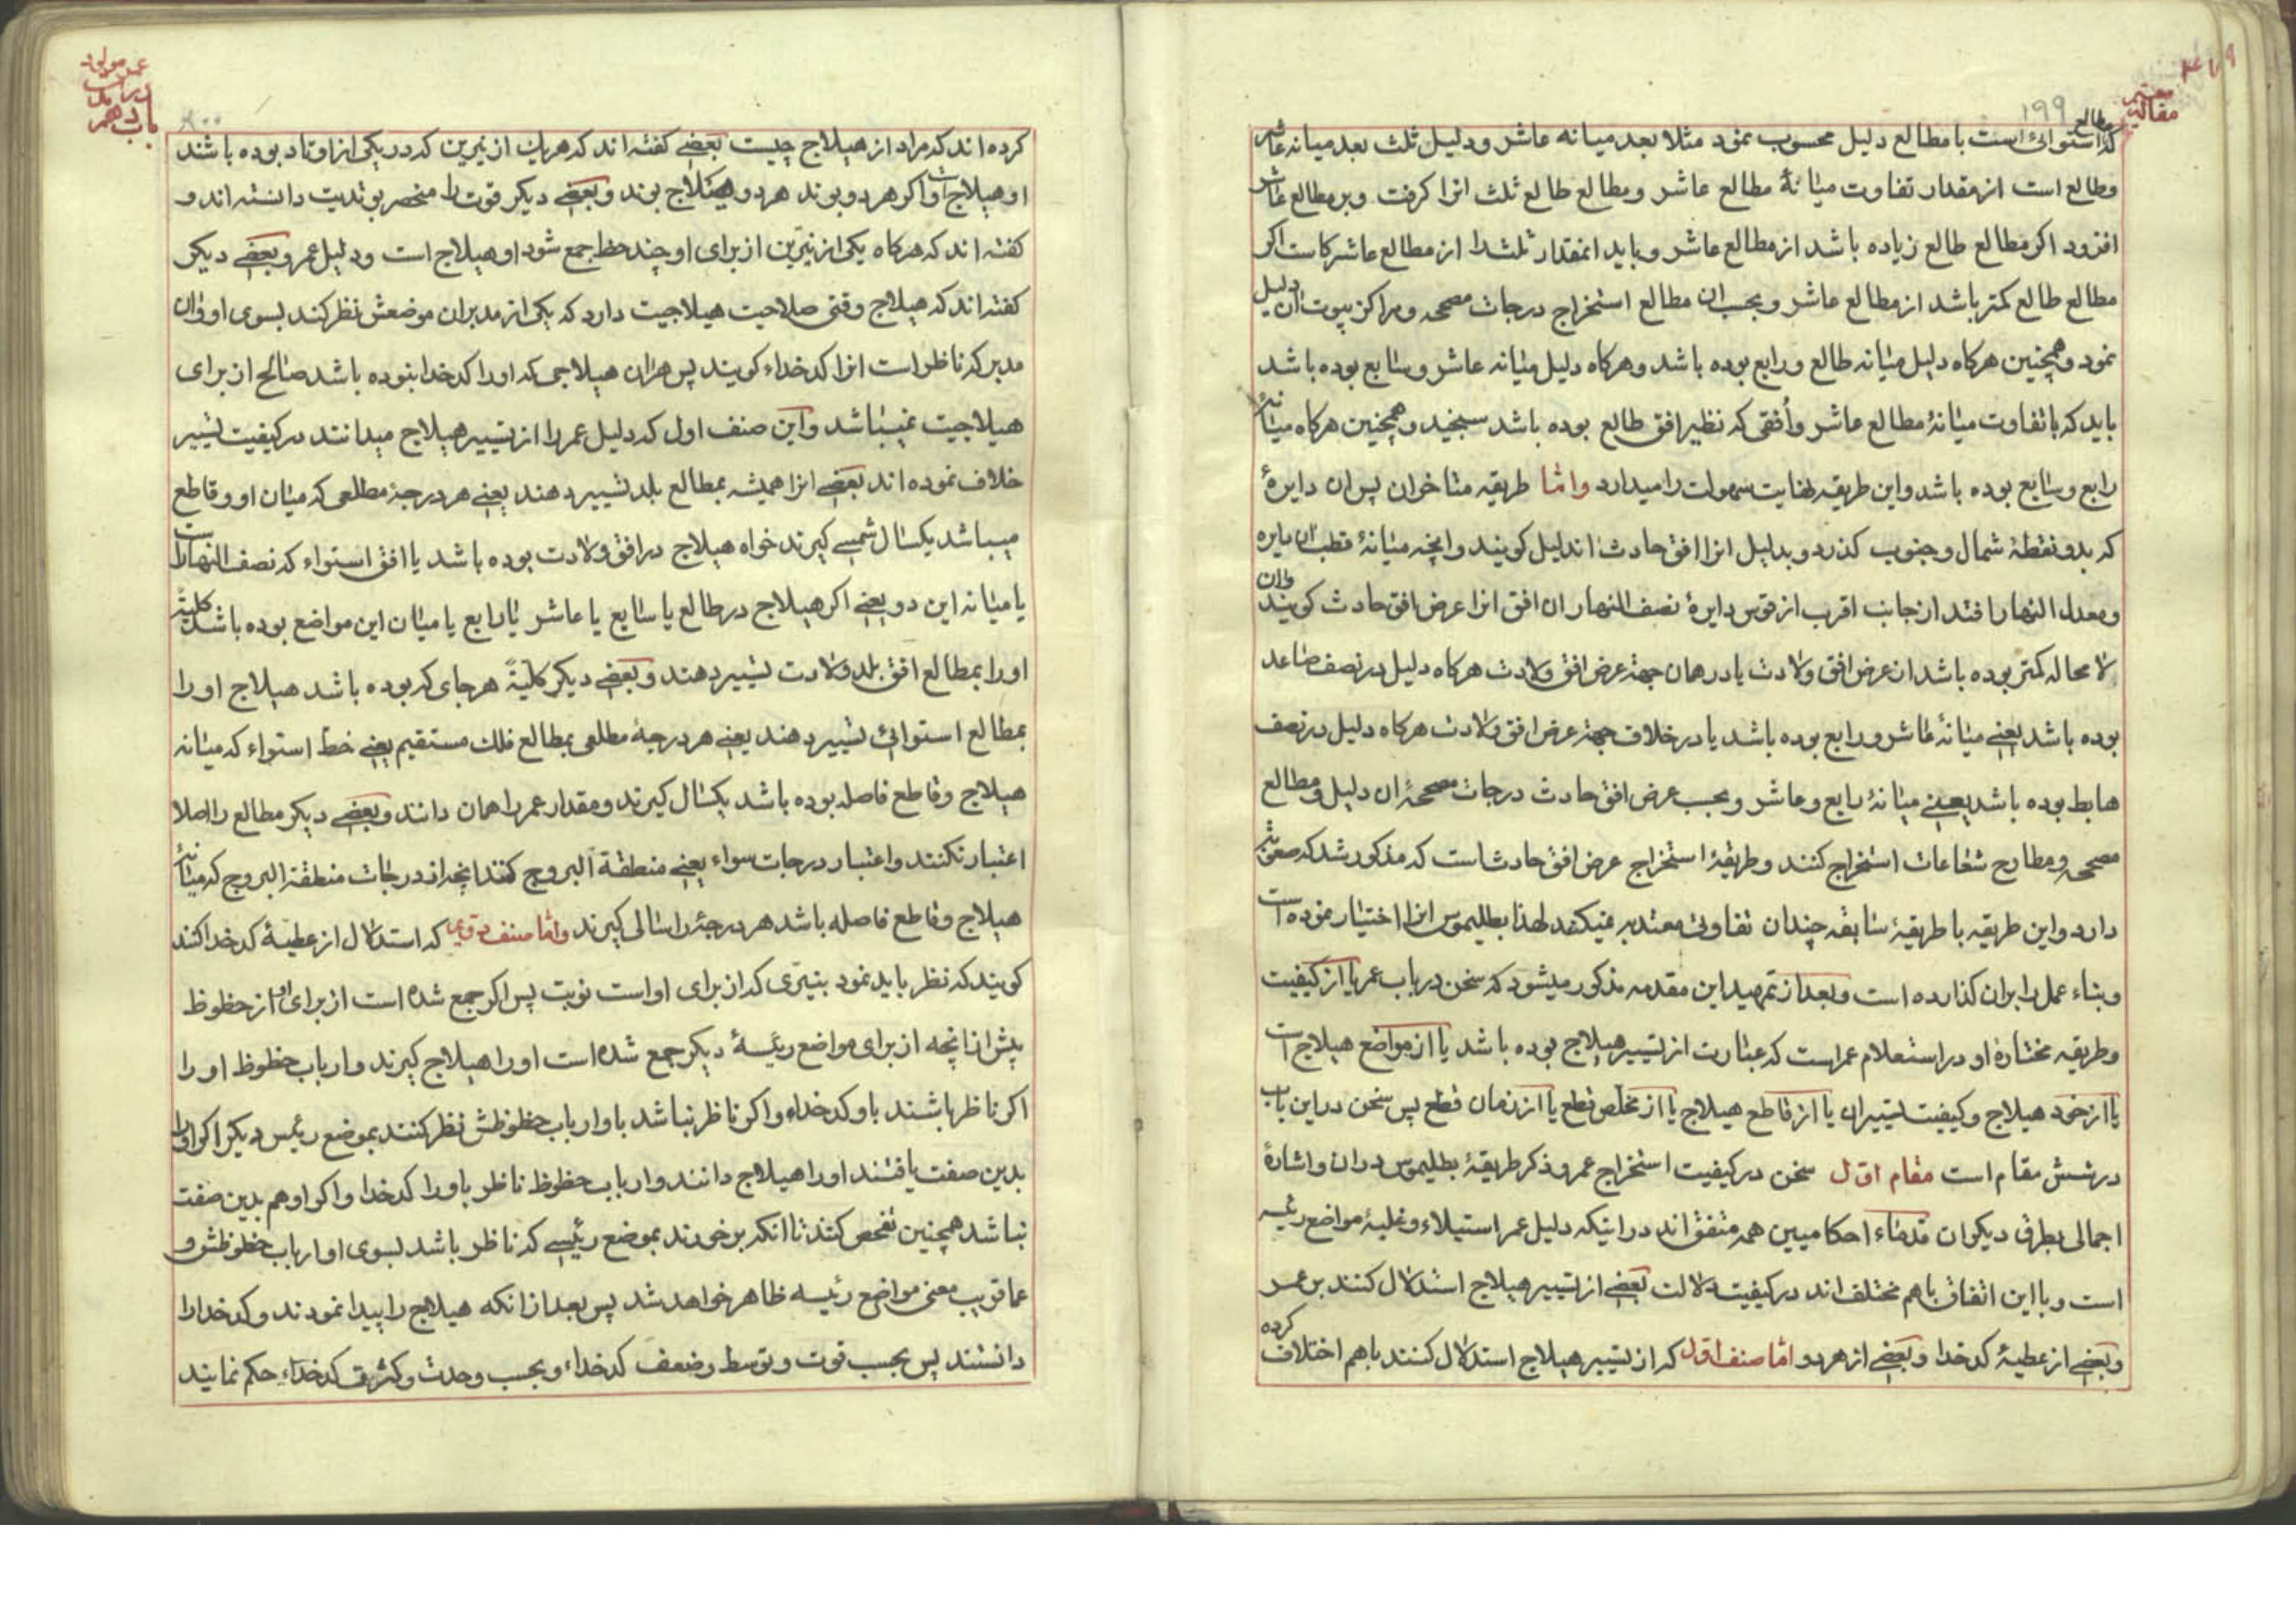 ۱۹۹
مقالهٔ
که استوائی است با مطالع دلیل محسوب نمود مثلا بعد میانه عاشر و دلیل ثلث بعد میانه عاشر
وطالع است از مقدار تفاوت میانهٔ مطالع عاشر ومطالع طالع ثلث انرا کرفت وبر مطالع عاشر
افزود اکر مطالع طالع زیاده باشد از مطالع عاشر وباید انمقدار ثلث را از مطالع عاشر کاست اکر
مطالع طالع کمتر باشد از مطالع عاشر وبحسب ان مطالع استخراج درجات مصححه ومراکز بیوت ان دلیل
نمود وهمچنین هرکاه دلیل میانه طالع ورابع بوده باشد وهرکاه دلیل میانه عاشر وسابع بوده باشد
باید که با تفاوت میانهٔ مطالع عاشر وأفقی که نظیر افق طالع بوده باشد سنجید وهمچنین هرکاه میانهٔ
رابع وسابع بوده باشد واین طریقه نهایت سهولت را میدارد واما طریقه متاخران پس ان دایرهٔ
که بدو نقطهٔ شمال وجنوب کذرد وبدلیل انرا افق حادث اندلیل کویند وانچه میانهٔ قطب ان دایره
ومعدل النهار افتد از جانب اقرب از قوس دایرهٔ نصف النهار ان افق انرا عرض افق حادث کویند وان
لا محاله کمتر بوده باشد از عرض افق ولادت یا در همان جهة عرض افق ولادت هرکاه دلیل در نصف صاعد
بوده باشد یعنی میانهٔ عاشر ورابع بوده باشد یا در خلاف جهة عرض افق ولادت هرکاه دلیل در نصف
هابط بوده باشد یعنی میانهٔ رابع وعاشر وبحسب عرض افق حادث درجات مصححهٔ ان دلیل ومطالع
مصححه ومطارح شعاعات استخراج کنند وطریقهٔ استخراج عرض افق حادث است که مذکور شد که صعوبتی
دارد واین طریقه با طریقهٔ سابقه چندان تفاوتی معتدبه نمیکند لهذا بطلیموس انرا اختیار نموده است
وبناء عمل را بران کذارده است وبعد از تمهید این مقدمه مذکور میشود که سخن در باب عمر یا از کیفیت
وطریقه مختارهٔ او در استعلام عمر است که عبارت از تسییر هیلاج بوده باشد یا از مواضع هیلاج است
یا از خود هیلاج وکیفیت تسییران یا از قاطع هیلاج یا از مخلص قطع یا از زمان قطع پس سخن در این باب
در شش مقام است مقام اوّل سخن در کیفیت استخراج عمر وذکر طریقهٔ بطلیموس دران واشارهٔ
اجمالی بطرق دیکران قدماء احکامیین همه متفق اند در اینکه دلیل عمر استیلاء وغلبهٔ مواضع رئیسه
است وبا این اتفاق باهم مختلف اند در کیفیت دلالت بعضی از تسییر هیلاج استدلال کنند بر عمر
وبعضی از عطیهٔ کدخدا وبعضی از هردو امّا صنف اوّل که از تسییر هیلاج استدلال کنند باهم اختلاف کرده
عمر مولود
باب دهم
کرده اند که مراد از هیلاج چیست بعضی کفته اند که هریك از نیرین که در یکی از اوتاد بوده باشند
او هیلاج است واکر هردو بوند هردو هیلاج بوند وبعضی دیکر قوت را منحصر بوتدیت دانسته اند و
کفته اند که هرکاه یکی از نیرین از برای او چند حظ جمع شود او هیلاج است ودلیل عمر وبعضی دیکر
کفته اند که هیلاج وقتی صلاحیت هیلاجیت دارد که یکی از مدبران موضعش نظر کند بسوی او وان
مدبر که ناظر است انرا کدخداء کویند پس هران هیلاجی که اورا کدخدا نبوده باشد صالح از برای
هیلاجیت نمیباشد واین صنف اول که دلیل عمر را از تسییر هیلاج میدانند در کیفیت تسییر
خلاف نموده اند بعضی انرا همیشه بمطالع بلد تسییر دهند یعنی هر درجهٔ مطلعی که میان او وقاطع
میباشد یکسال شمسی کیرند خواه هیلاج در افق ولادت بوده باشد یا افق استواء که نصف النهار است
یا میانه این دو یعنی اکر هیلاج در طالع یا سابع یا عاشر یا رابع یا میان این مواضع بوده باشد کلیةً
اورا بمطالع افق بلد ولادت تسییر دهند وبعضی دیکر کلیةً هرجای که بوده باشد هیلاج اورا
بمطالع استوائی تسییر دهند یعنی هر درجهٔ مطلعی بمطالع فلك مستقیم یعنی خط استواء که میانه
هیلاج وقاطع فاصله بوده باشد یکسال کیرند ومقدار عمر را همان دانند وبعضی دیکر مطالع را اصلا
اعتبار نکنند واعتبار درجات سواء یعنی منطقة البروج کنند انچه از درجات منطقة البروج که میانهٔ
هیلاج وقاطع فاصله باشد هر درجهٔ را سالی کیرند وامّا صنف دوّم که استدلال از عطیهٔ کدخدا کنند
کویند که نظر باید نمود بنیّری که از برای او است نوبت پس اکر جمع شده است از برای او از حظوظ
بیش از انچه از برای مواضع رئیسهٔ دیکر جمع شده است اورا هیلاج کیرند وارباب حظوظ اورا
اکر ناظر باشند باو کدخداء واکر ناظر نباشد باو ارباب حظوظش نظر کنند بموضع رئیس دیکر اکر انرا
بدین صفت یافتند اورا هیلاج دانند وارباب حظوظ ناظر باورا کدخدا واکر او هم بدین صفت
نباشد همچنین تفحص کنند تا انکه برخورند بموضع رئیسی که ناظر باشد بسوی او ارباب حظوظش و
عما قریب معنی مواضع رئیسه ظاهر خواهد شد پس بعد از انکه هیلاج را پیدا نمودند وکدخدا را
دانستند پس بحسب قوت وتوسط وضعف کدخداء وبحسب وحدت وکثرت کدخداء حکم نمایند